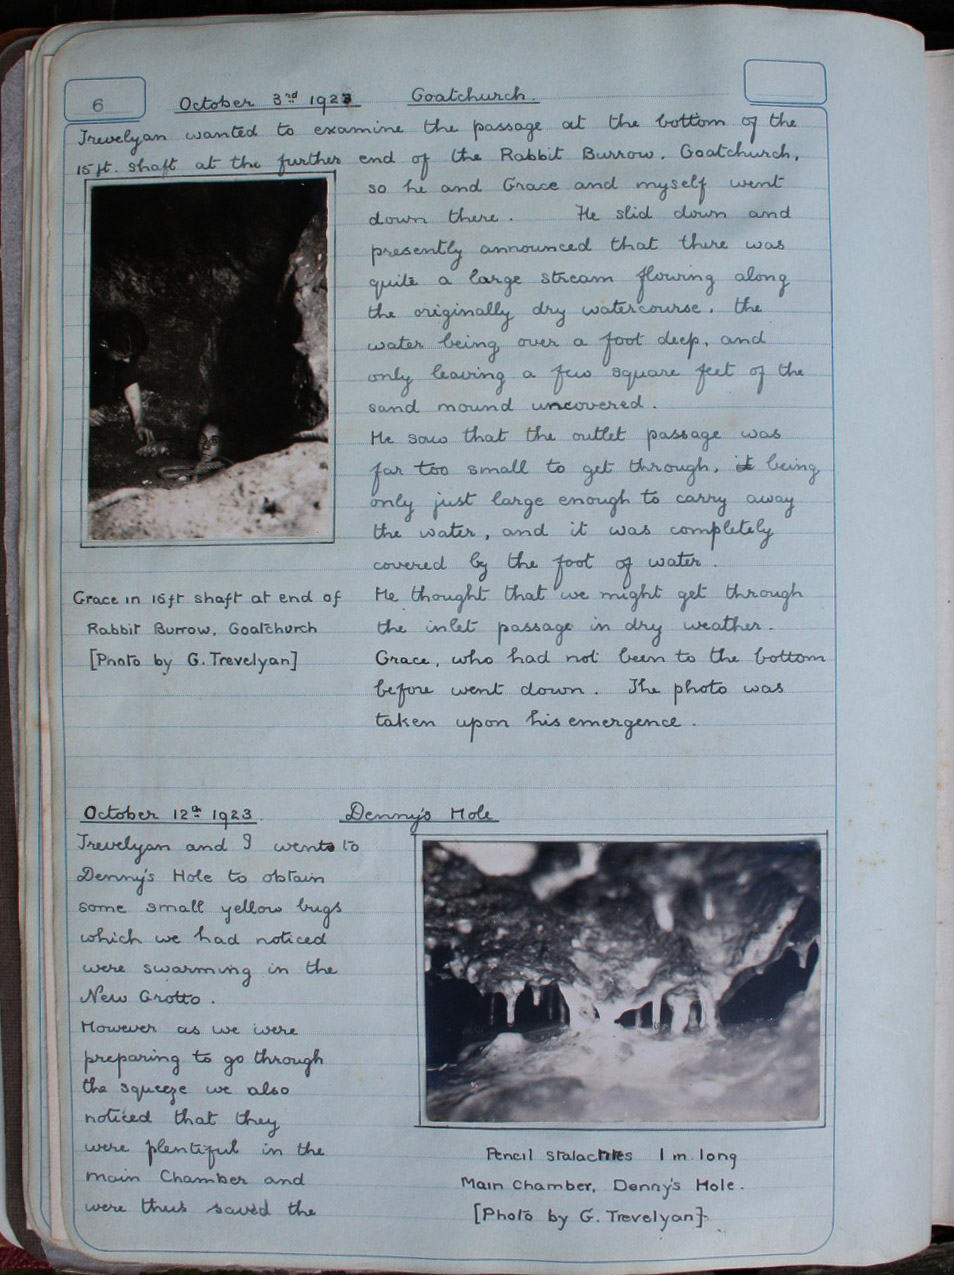 6
October 3rd 1923 Goatchurch.
Trevelyan wanted to examine the passage at the bottom of the
15 ft. shaft at the further end of the Rabbit Burrow, Goatchurch,
so he and Grace and myself went
down there. He slid down and
presently announced that there was
quite a large stream flowing along
the originally dry watercourse, the
water being over a foot deep, and
only leaving a few square feet of the
sand mound uncovered.
He saw that the outlet passage was
far too small to get through, it being
only just large enough to carry away
the water, and it was completely
covered by the foot of water.
He thought that we might get through
the inlet passage in dry weather.
Grace, who had not been to the bottom
before went down. The photo was
taken upon his emergence.
Grace in 16ft shaft at end of
Rabbit Burrow, Goatchurch
[Photo by G. Trevelyan]
October 12th 1923. Denny's Hole
Trevelyan and I went to
Denny's Hole to obtain
some small yellow bugs
which we had noticed
were swarming in the
New Grotto.
However as we were
preparing to go through
the squeeze we also
noticed that they
were plentiful in the
main Chamber and
were thus saved the
Pencil stalactites 1 in. long
Main Chamber, Denny's Hole.
[Photo by G. Trevelyan]